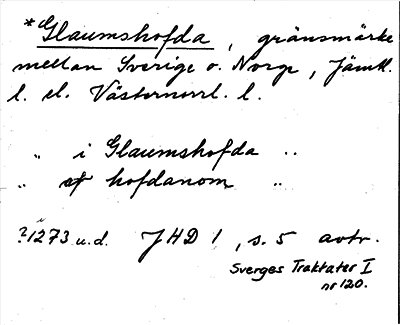 *Glaumshofda, gränsmärke
mellan Sverige o. Norge, Jämtl.
l. el. Västernorrl. l.
" i Glaumshofda "
" af hofdanom "
?1273 u.d. JHD 1, s. 5 avtr.
Sverges Traktater I
nr 120.